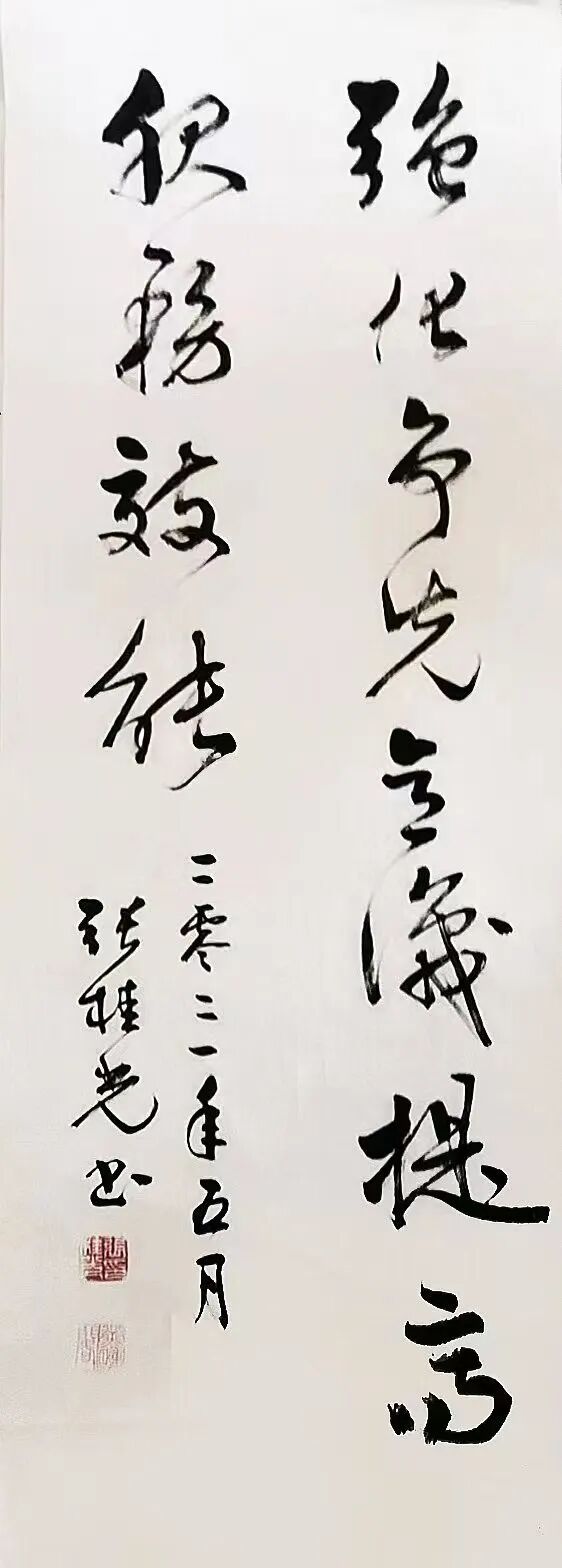 强化争先意识提高
服务效能
二零二一年五月
张桂光书